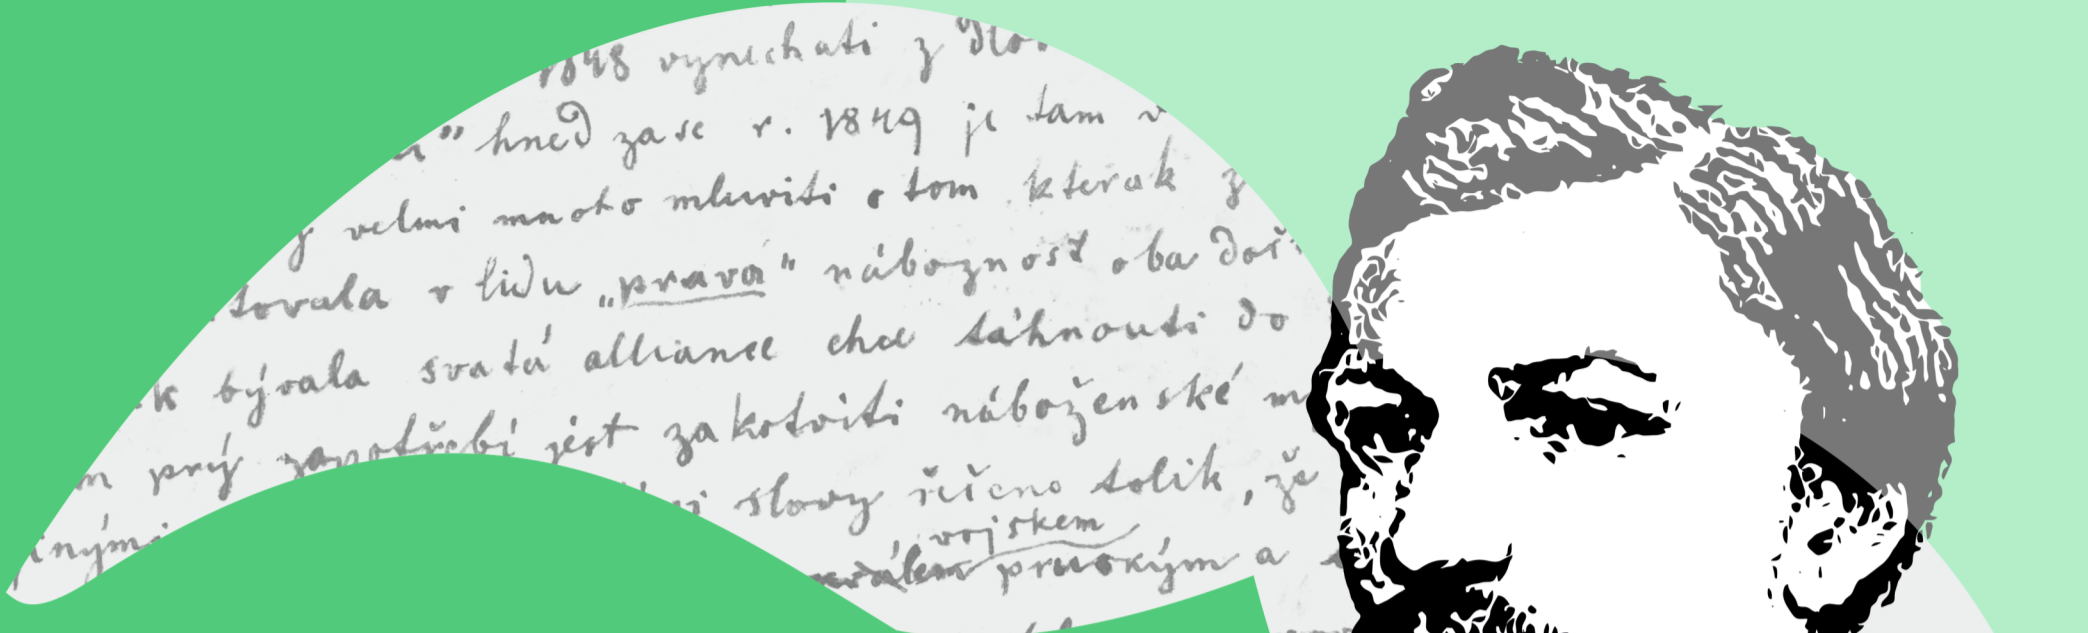 1848 vynechati z
" hned zase r. 1849 je tam v
velmi mnoho mluviti o tom kterak z
tovala v lidu „pravá" náboznost oba
k bývala svatá alliance chce táhnouti do
m prý zapotřebí jest zakotviti náboženské m
inými slovy řečeno tolik, že
vojskem
králem pruským a